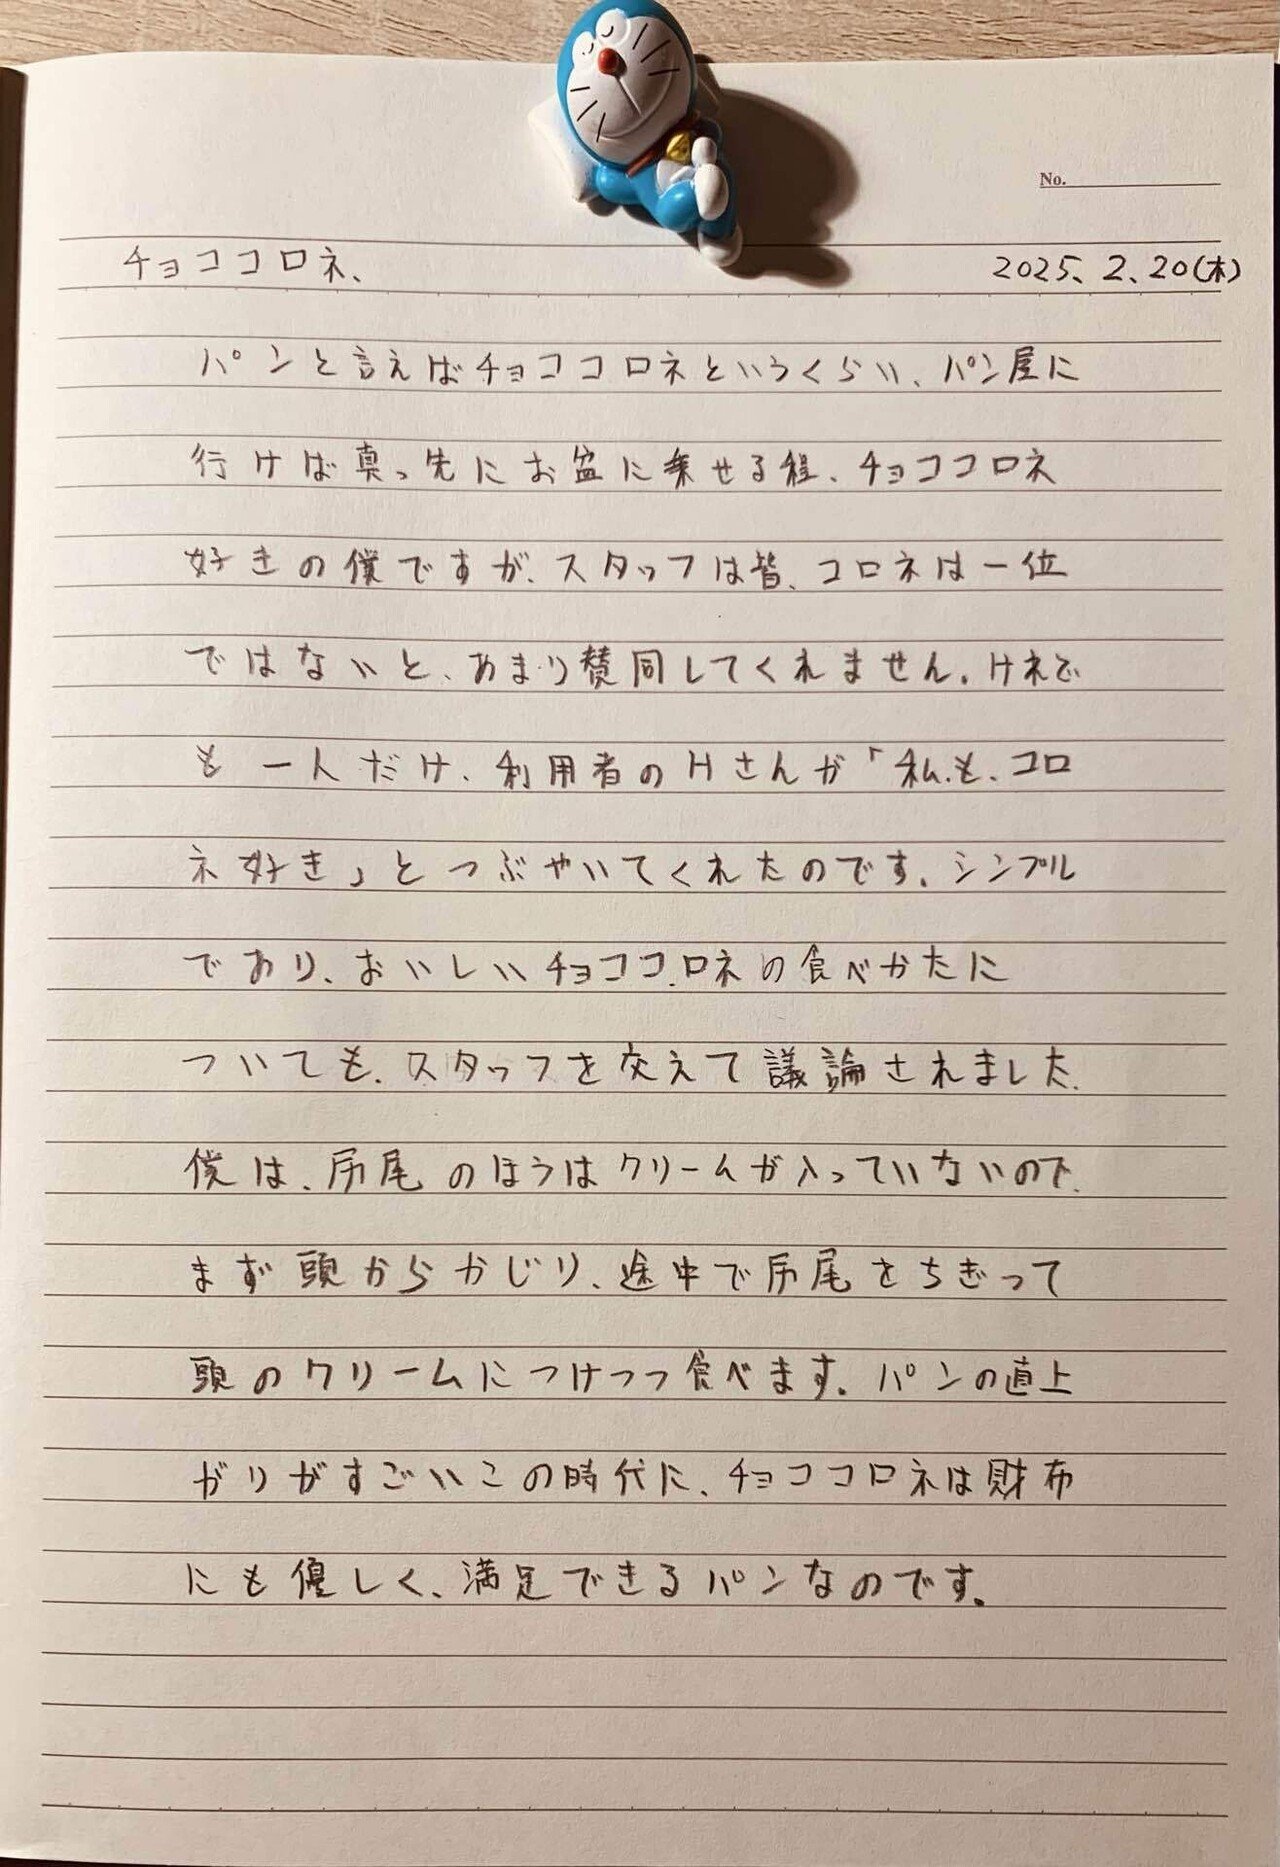 No.
チョココロネ、 2025、2、20(木)
パンと言えばチョココロネというくらい、パン屋に
行けば真っ先にお盆に乗せる程、チョココロネ
好きの僕ですが、スタッフは皆、コロネは一位
ではないと、あまり賛同してくれません。けれど
も一人だけ、利用者のHさんが「私も、コロ
ネ好き」とつぶやいてくれたのです。シンプル
であり、おいしいチョココロネの食べかたに
ついても、スタッフを交えて議論されました。
僕は、尻尾のほうはクリームが入っていないので、
まず頭からかじり、途中で尻尾をちぎって
頭のクリームにつけつつ食べます。パンの直上
がりがすごいこの時代に、チョココロネは財布
にも優しく、満足できるパンなのです。